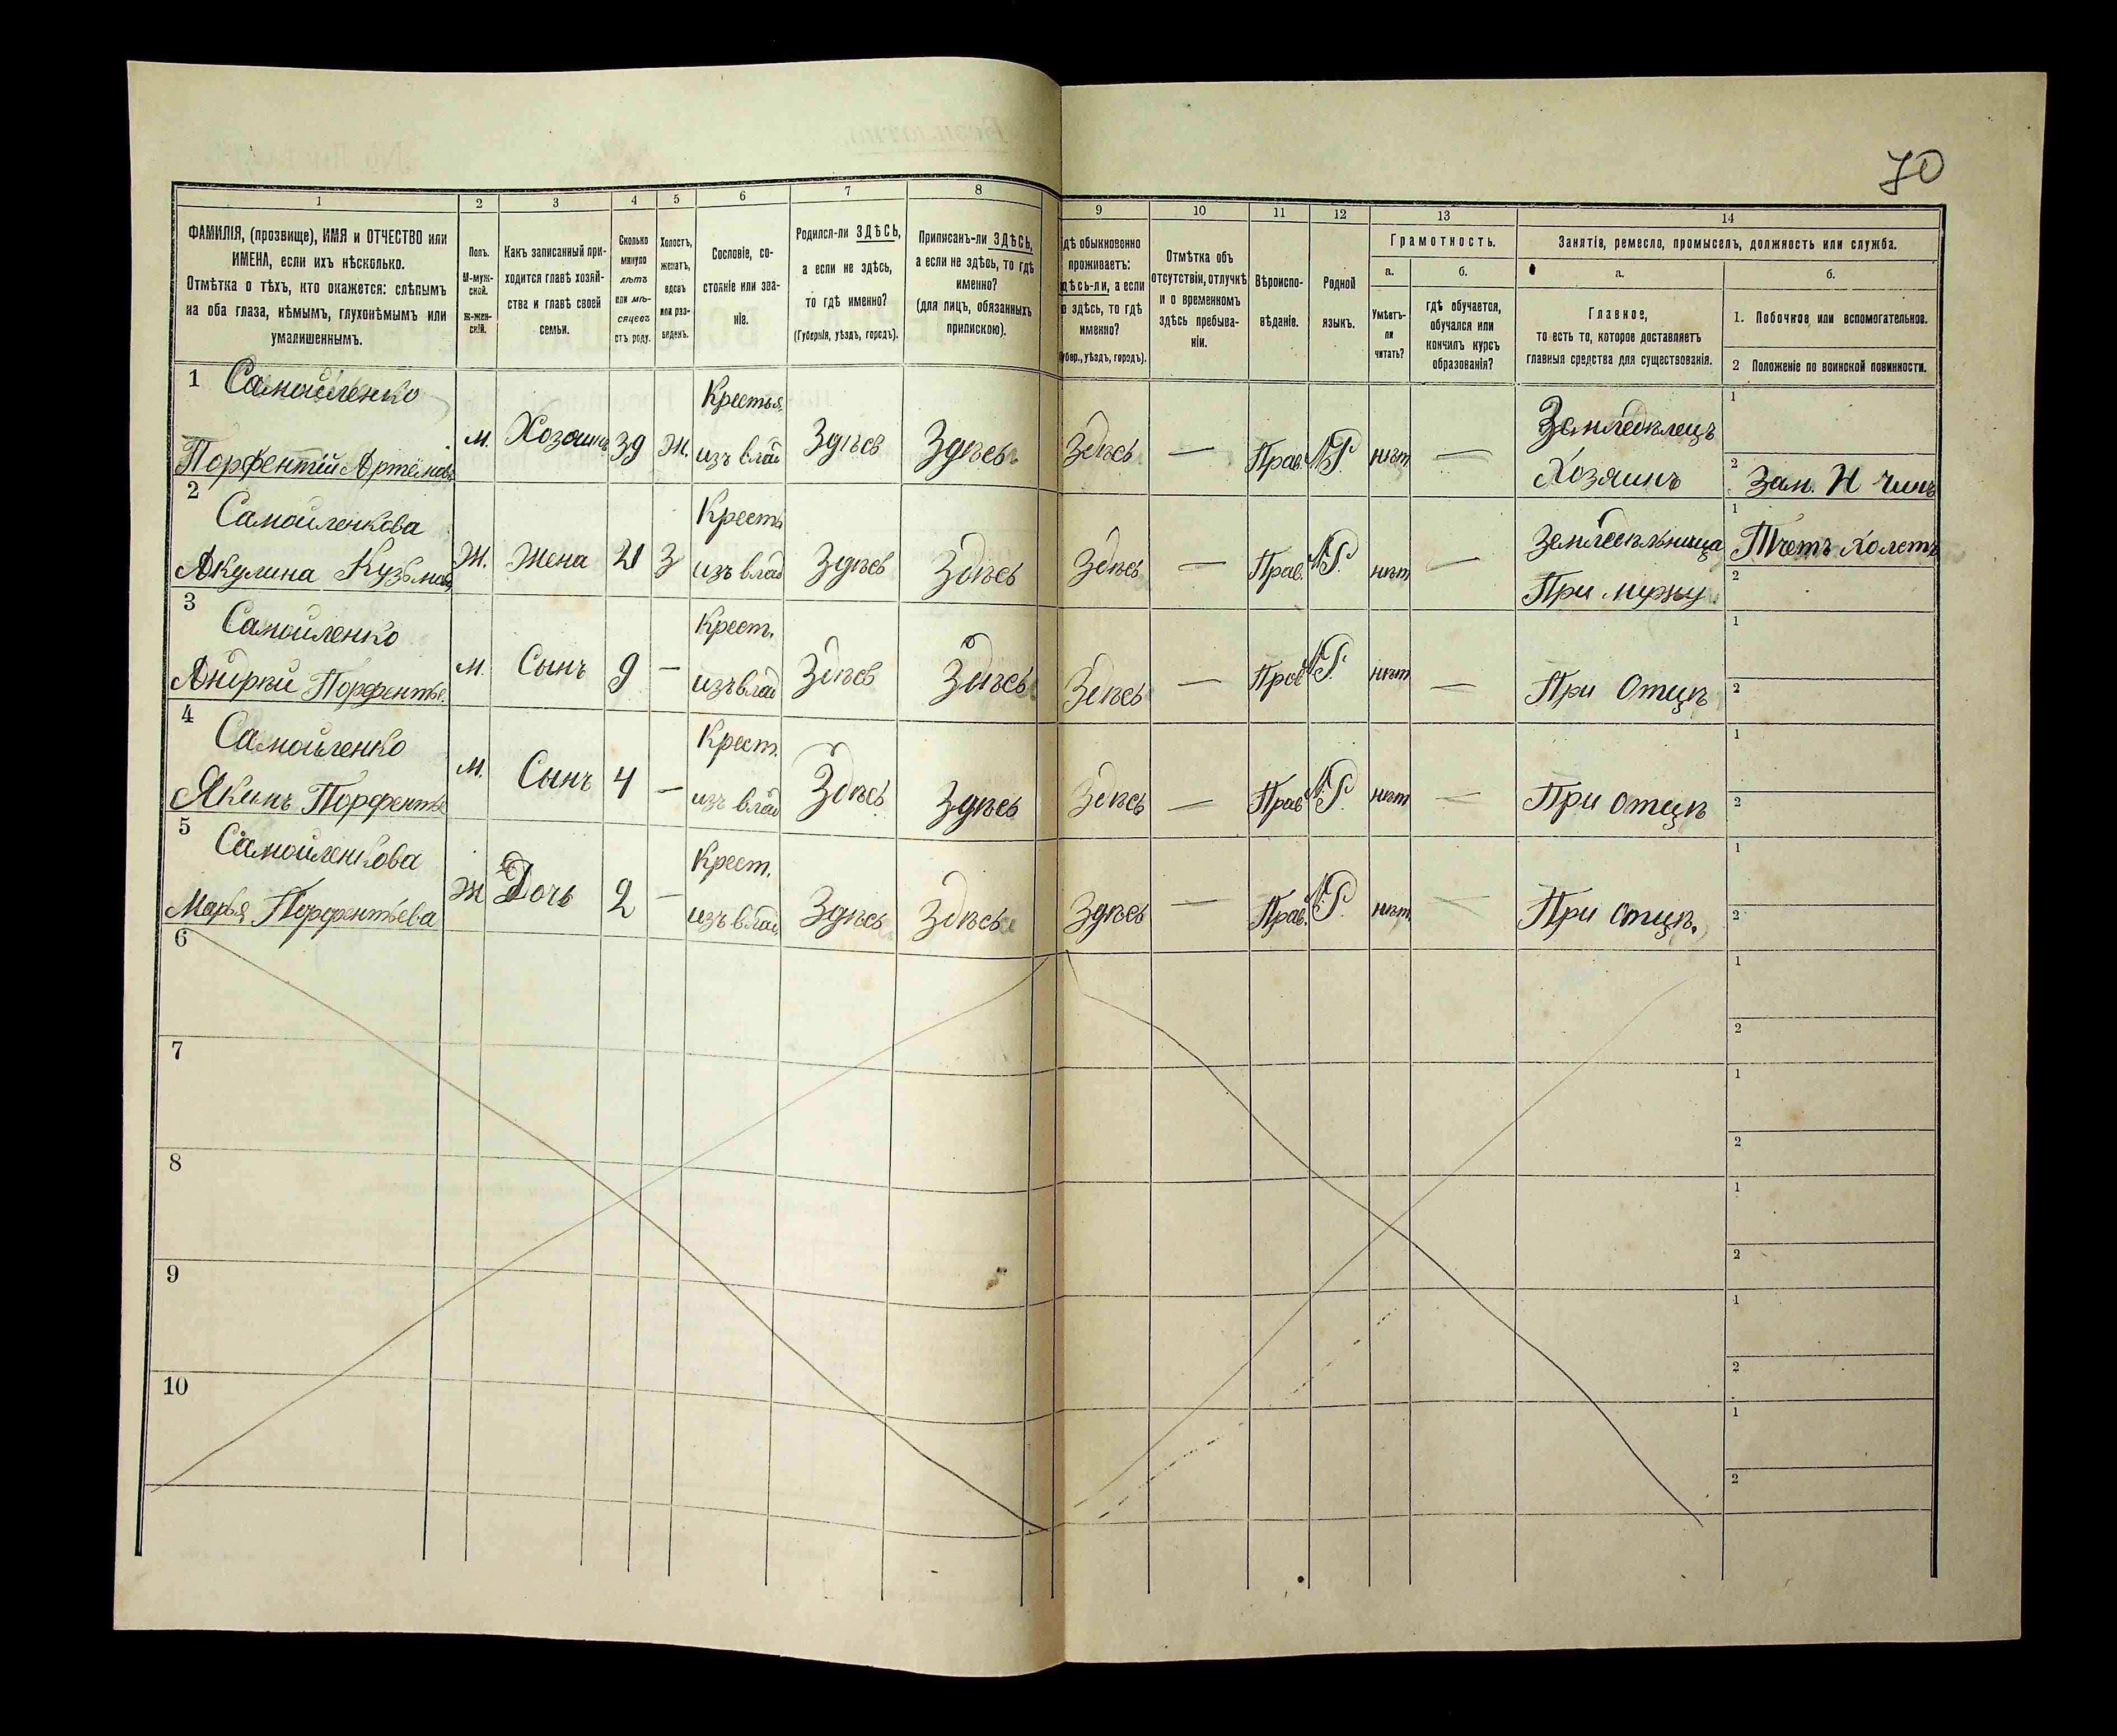 70
1 2 3 4 5 6 7 8 9 10 11 12 13 14
ФАМИЛІЯ, (прозвище), ИМЯ и ОТЧЕСТВО или
ИМЕНА, если ихъ нѣсколько.
Отмѣтка о тѣхъ, кто окажется: слѣпымъ
на оба глаза, нѣмымъ, глухонѣмымъ или
умалишеннымъ.
Полъ.
М-муж-
ской.
Ж-жен-
скій.
Какъ записанный при-
ходится главѣ хозяй-
ства и главѣ своей
семьи.
Сколько
минуло
лѣтъ
или мѣ-
сяцевъ
отъ роду.
Холостъ,
женатъ,
вдовъ
или раз-
веденъ.
Сословіе, со-
стояніе или зва-
ніе.
Родился-ли ЗДѢСЬ,
а если не здѣсь,
то гдѣ именно?
(Губернія, уѣздъ, городъ).
Приписанъ-ли ЗДѢСЬ,
а если не здѣсь, то гдѣ
именно?
(для лицъ, обязанныхъ
припискою).
гдѣ обыкновенно
проживаетъ:
здѣсь-ли, а если
не здѣсь, то гдѣ
именно?
(Губер., уѣздъ, городъ).
Отмѣтка объ
отсутствіи, отлучкѣ
и о временномъ
здѣсь пребыва-
ніи.
Вѣроиспо-
вѣданіе.
Родной
языкъ.
Грамотность.
а.
Умѣетъ-
ли
читать?
б.
гдѣ обучается,
обучался или
кончилъ курсъ
образованія?
Занятіе, ремесло, промыселъ, должность или служба.
а.
Главное,
то есть то, которое доставляетъ
главныя средства для существованія.
б.
1. Побочное или вспомогательное.
2 Положеніе по воинской повинности.
1 Самойленко Крестья. Земледѣлецъ 1
Порфентій Артёмовъ м. Хозяинъ 39 ж. изъ влад Здѣсь Здѣсь Здѣсь — Прав. М.Р. нѣт — Хозяинъ 2 Зап. Н Чинъ
2 Самойленкова Кресть Земледѣльница 1 Ткетъ холстъ
Акулина Кузьмов Ж. Жена 21 З изъ влад Здѣсь Здѣсь Здѣсь — Прав. М.Р. нѣт — При мужу 2
3 Самойленко Крест. 1
Андрѣй Порфентье. м. Сынъ 9 — изъ влад Здѣсь Здѣсь Здѣсь — Прав М.Р. нѣт — При Отцѣ 2
4 Самойленко Крест. 1
Якимъ Порфентье м. Сынъ 4 — изъ влад Здѣсь Здѣсь Здѣсь — Прав М.Р. нѣт — При отцѣ 2
5 Самойленкова Крест. 1
Марья Порфентьева Ж Дочь 2 — изъ влад. Здѣсь Здѣсь Здѣсь — Прав. М.Р. нѣт — При отцѣ. 2
6 1
2
7 1
2
8 1
2
9 1
2
10 1
2